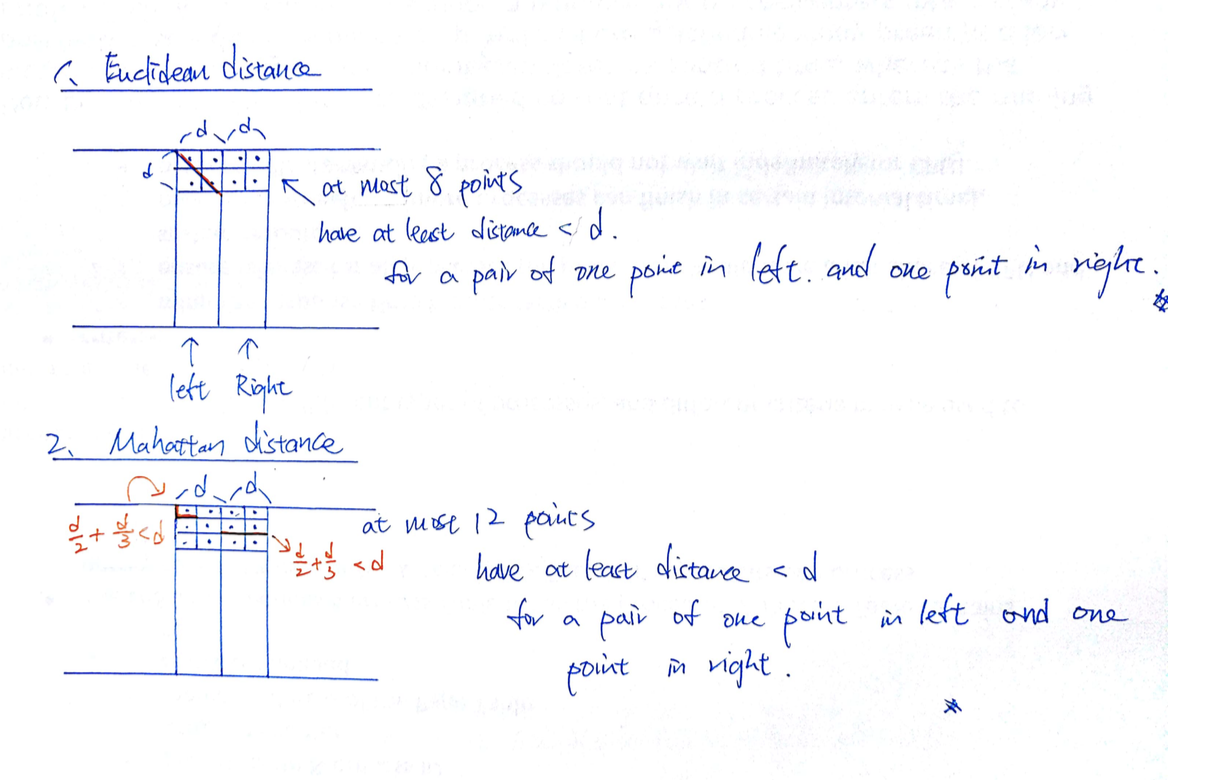 1. Euclidean distance
d d
d
at most 8 points
have at least distance < d.
for a pair of one point in left. and one point in right.
left Right
2. Mahattan distance
d d
d/2 + d/3 < d
at most 12 points
d/2 + d/3 < d
have at least distance < d
for a pair of one point in left and one
point in right.